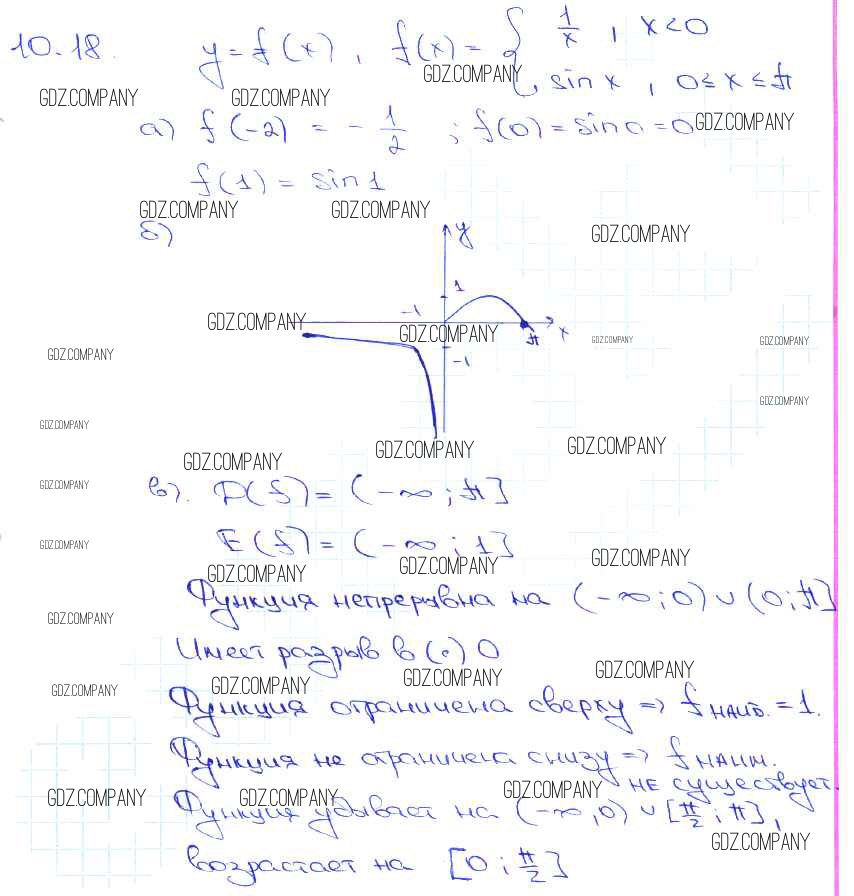 10.18. y = f(x), f(x) = { 1/x, x<0
sin x, 0 ≤ x ≤ π
GDZ.COMPANY
GDZ.COMPANY GDZ.COMPANY
а) f(-2) = - 1/2 ; f(0) = sin 0 = 0
GDZ.COMPANY
f(1) = sin 1
GDZ.COMPANY GDZ.COMPANY
б)
y
GDZ.COMPANY
1
-1
GDZ.COMPANY
GDZ.COMPANY
π x
GDZ.COMPANY
GDZ.COMPANY
GDZ.COMPANY
-1
GDZ.COMPANY
GDZ.COMPANY
GDZ.COMPANY GDZ.COMPANY GDZ.COMPANY
GDZ.COMPANY
в). D(f) = (-∞; π]
GDZ.COMPANY
E(f) = (-∞; 1]
GDZ.COMPANY GDZ.COMPANY GDZ.COMPANY
Функция непрерывна на (-∞; 0) ∪ (0; π]
GDZ.COMPANY
Имеет разрыв в (·) 0
GDZ.COMPANY GDZ.COMPANY GDZ.COMPANY
GDZ.COMPANY
Функция ограничена сверху => f НАИБ. = 1.
Функция не ограничена снизу => f НАИМ.
НЕ существует.
GDZ.COMPANY GDZ.COMPANY GDZ.COMPANY
Функция убывает на (-∞, 0) ∪ [π/2; π],
GDZ.COMPANY
возрастает на [0; π/2]